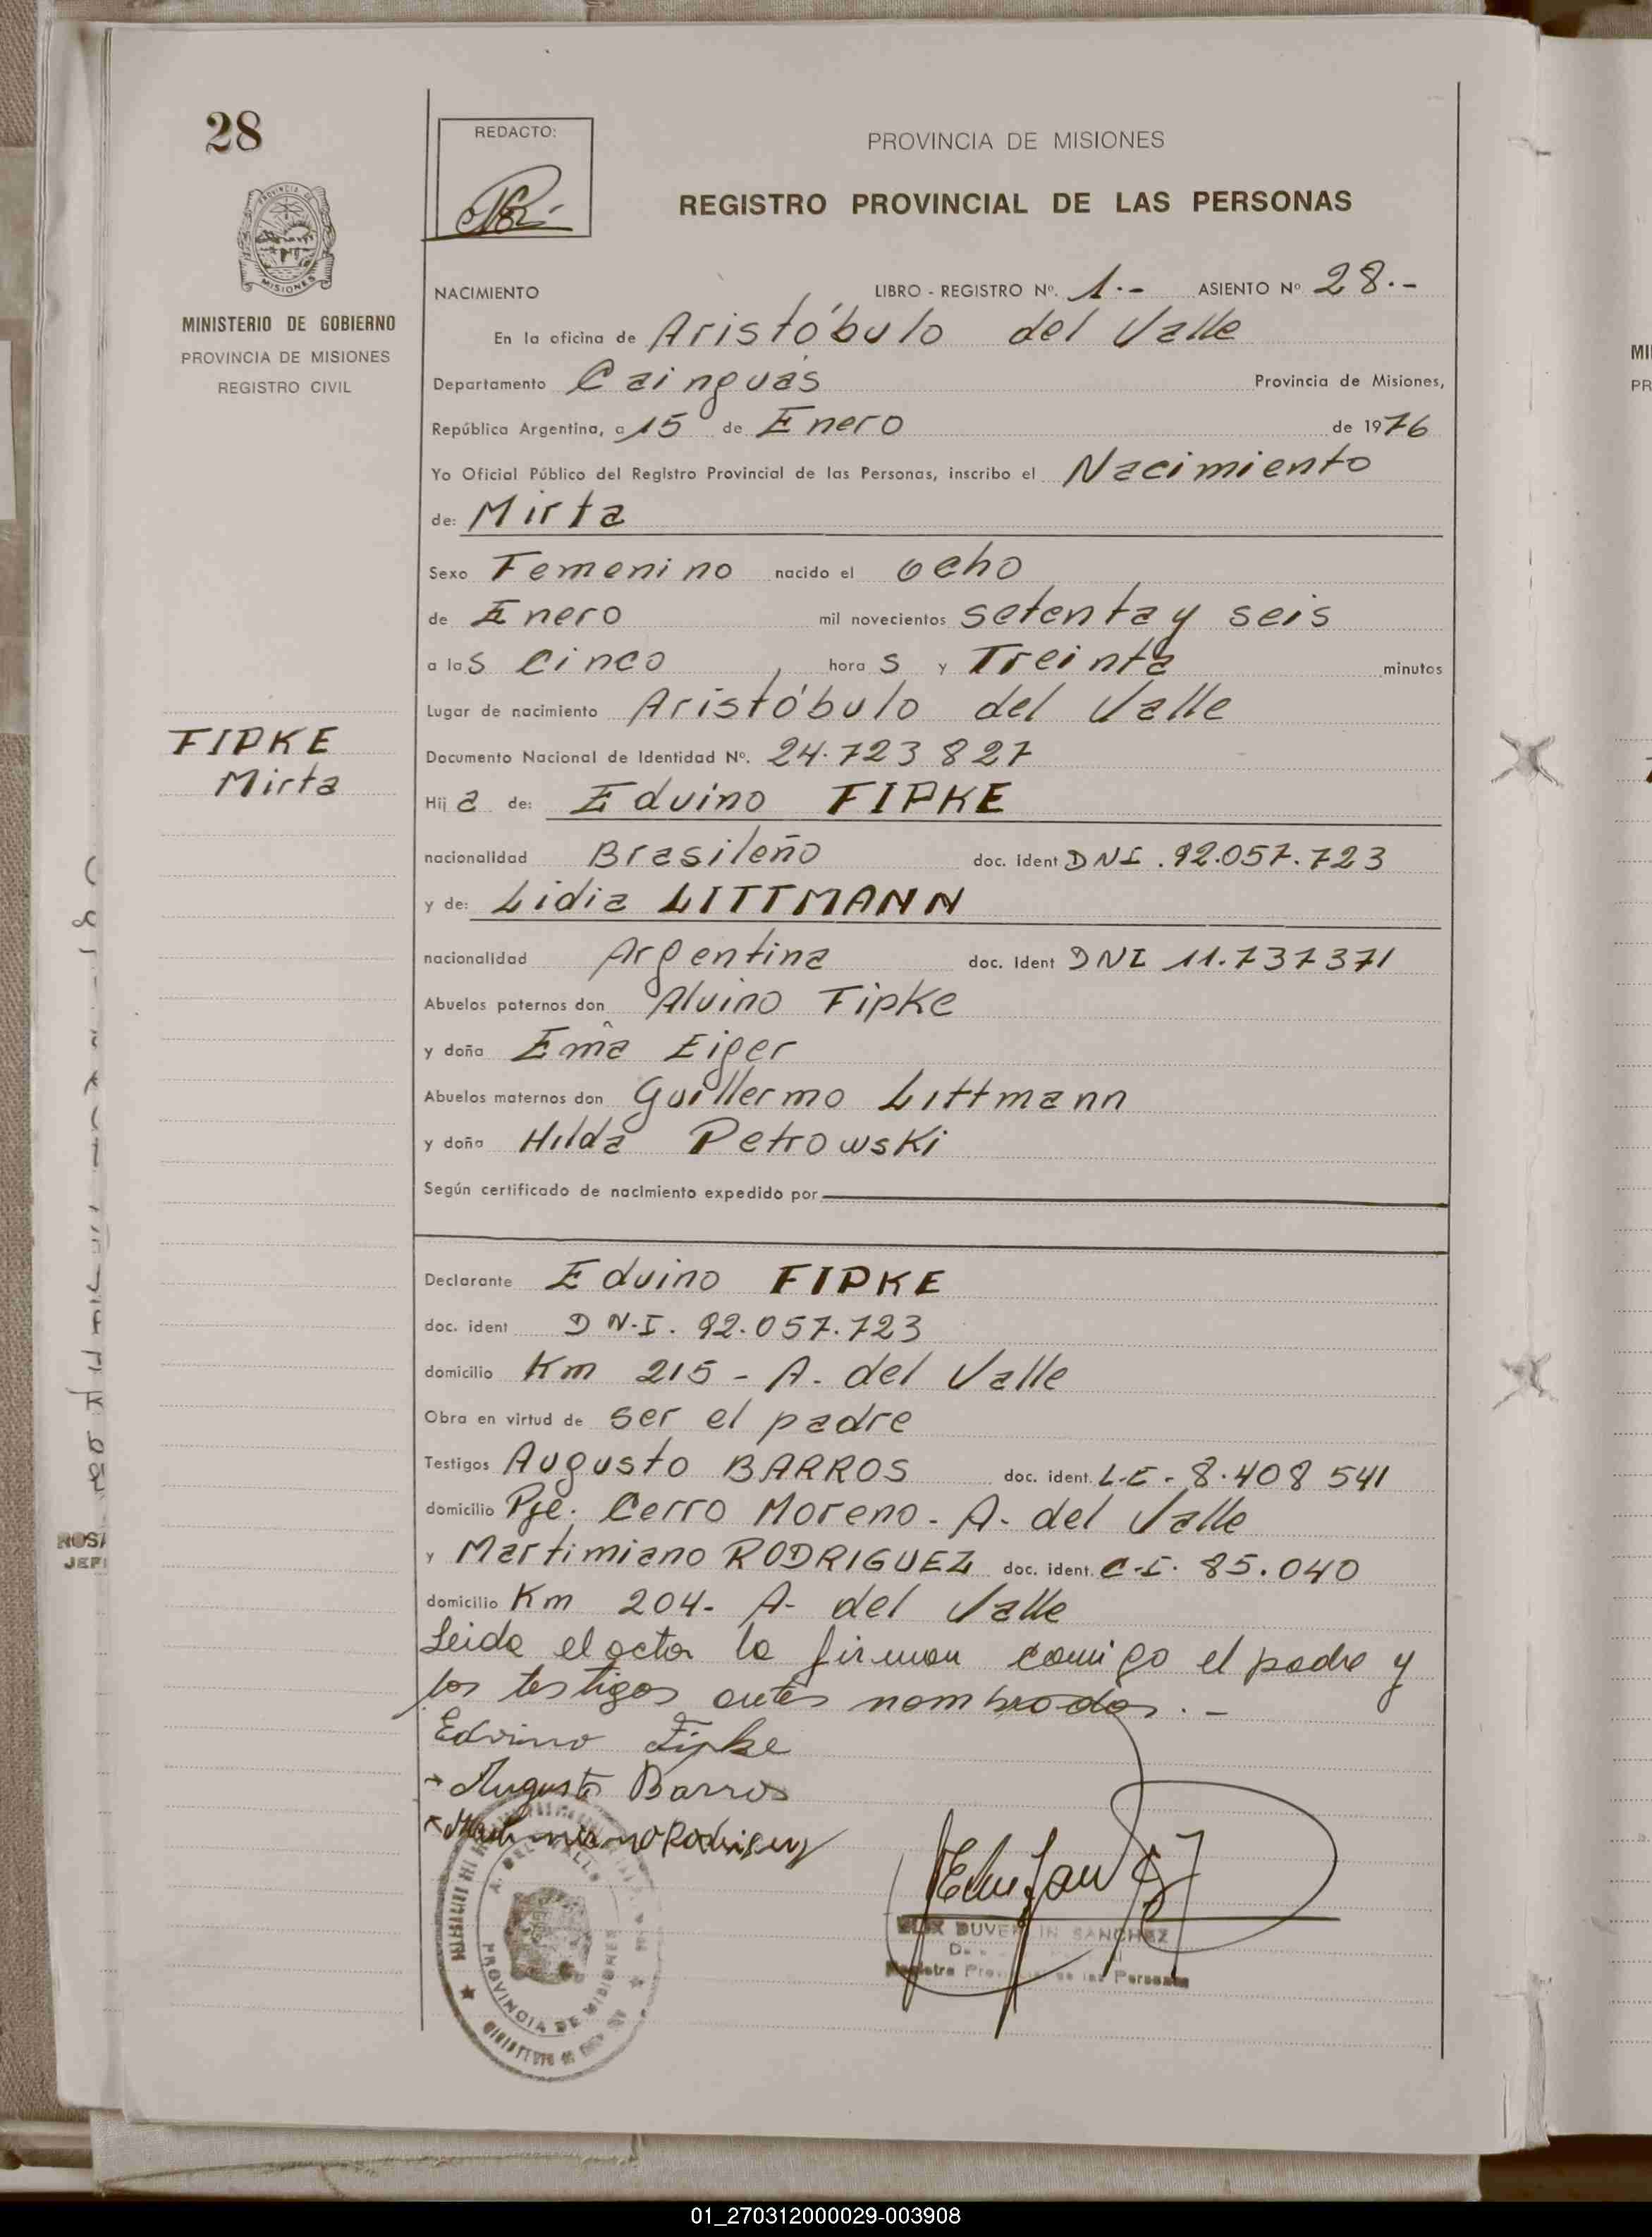 28
REDACTO:
PROVINCIA DE MISIONES
REGISTRO PROVINCIAL DE LAS PERSONAS
MISIONES
MINISTERIO DE GOBIERNO
PROVINCIA DE MISIONES
REGISTRO CIVIL
NACIMIENTO LIBRO - REGISTRO Nº. 1.- ASIENTO Nº 28.-
En la oficina de Aristóbulo del Valle
Departamento Cainguás Provincia de Misiones,
República Argentina, a 15 de Enero de 1976
Yo Oficial Público del Registro Provincial de las Personas, inscribo el Nacimiento
de: Mirta
Sexo Femenino nacido el ocho
de Enero mil novecientos setenta y seis
a las cinco, horas y Treinta minutos
Lugar de nacimiento Aristóbulo del Valle
FIPKE
Mirta
Documento Nacional de Identidad Nº. 24.723 827
Hija de: Eduino FIPKE
nacionalidad Brasileño doc. ident DNI. 92.057.723
y de: Lidia LITTMANN
nacionalidad Argentina doc. ident DNI 11.737371
Abuelos paternos don Alvino Fipke
y doña Em̂a Eiger
Abuelos maternos don Guillermo Littmann
y doña Hilda Petrowski
Según certificado de nacimiento expedido por
Declarante Eduino FIPKE
doc. ident D N.I. 92.057.723
domicilio Km 215 - A. del Valle
Obra en virtud de ser el padre
Testigos Augusto BARROS doc. ident. L.E - 8.408 541
domicilio Pje. Cerro Moreno - A. del Valle
y Martimiano RODRIGUEZ doc. ident. C.I. 85.040
domicilio Km 204 - A- del Valle
Leida el acta la firman comigo el padre y
los testigos antes nombrados. -
Edvino Fipke
Augusto Barros
Martimiano Rodriguez
DUVERLIN SANCHEZ
Registro Provincial de las Personas
A. DEL VALLE
PROVINCIA DE MISIONES
ROSA
JEF
MI
PR
01_270312000029-003908